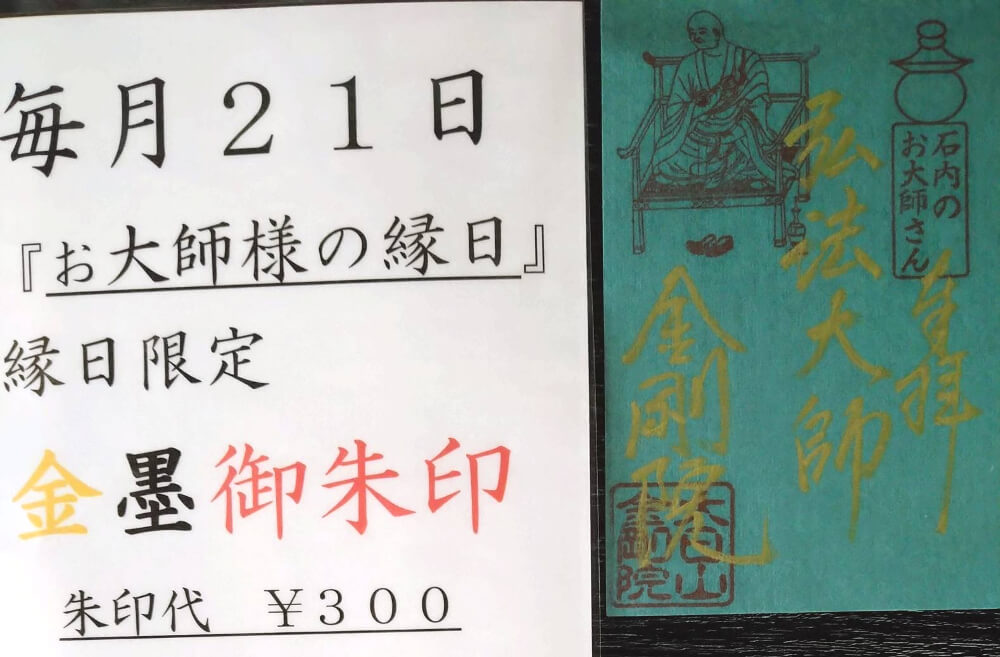 毎月21日
『お大師様の縁日』
縁日限定
金墨御朱印
朱印代 ¥300
石内の
お大師さん
奉拝
弘法大師
金剛院
大日山
金剛院